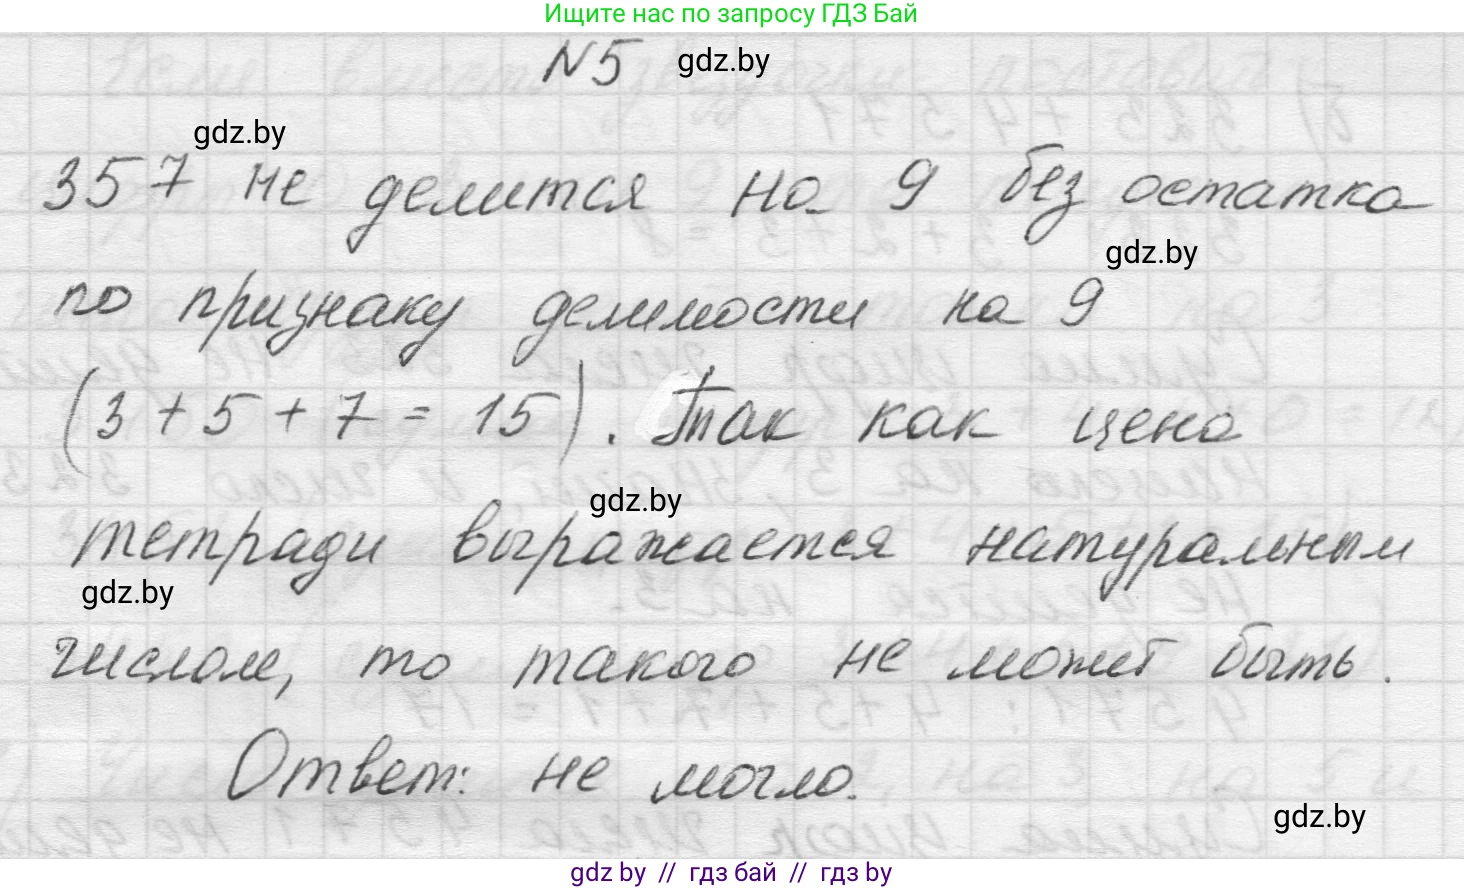 Ищите нас по запросу ГДЗ Бай
№5
gdz.by
gdz.by
357 не делится на 9 без остатка
gdz.by
по признаку делимости на 9
(3 + 5 + 7 = 15). Так как цена
gdz.by
тетради выражается натуральным
gdz.by
числом, то такого не может быть.
Ответ: не могло.
gdz.by
gdz.by // гдз бай // gdz.by